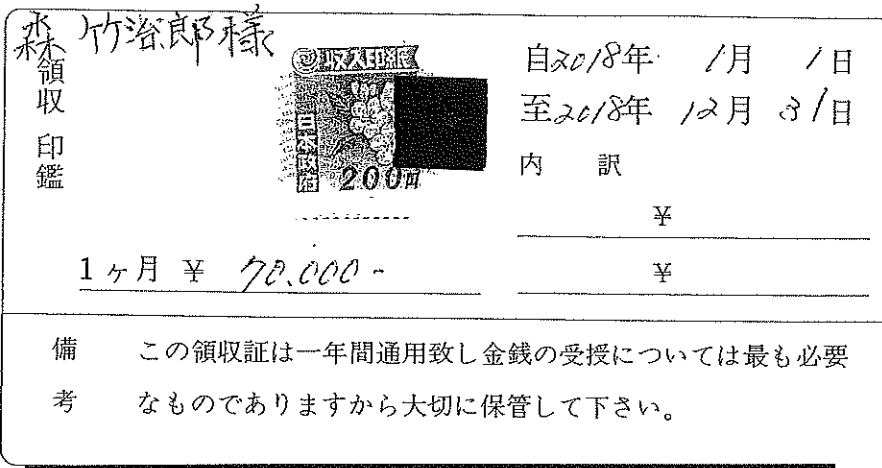 森 竹治郎様
領収印鑑
収入印紙
日本政府
200円
自2018年 1月 1日
至2018年 12月 31日
内 訳
¥
¥
1ヶ月 ¥ 70.000-
備考
この領収証は一年間通用致し金銭の受授については最も必要
なものでありますから大切に保管して下さい。